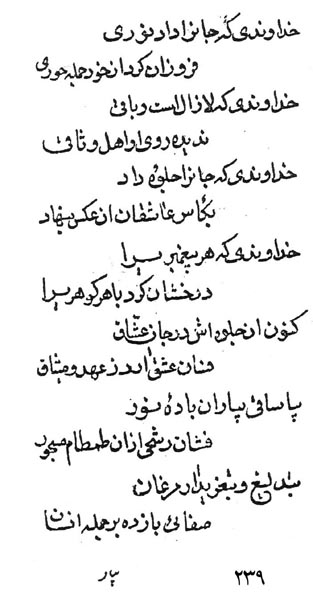 خداوندی که جانرا داد نوری
فروزان کرد از خود جمله حوری
خداوندی که لازال است و باقی
ندیده روی او اهل وثاقی
خداوندی که جانرا جلوه داد
بکاس عاشقان از عکس بنهاد
خداوندی که هر پیغمبریرا
درخشان کرد با هر گوهریرا
کنون از جلوه اش در جان عشاق
فتان عشقی اندر عهد و میثاق
بیا ساقی بیاران باده نور
فشان رشحی ازان طمطام مسجور
بتبلیغ و بتغرید ار مرغان
صفائی بازده بر جمله انسان
۲۳۹
بیار